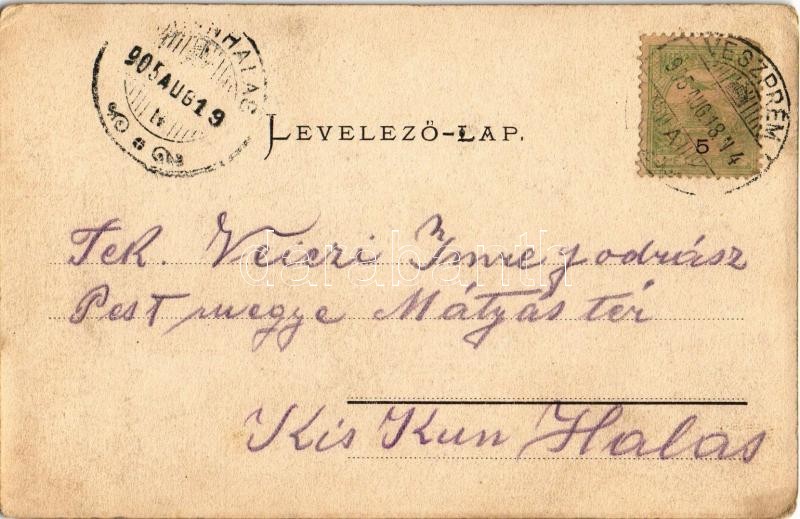 NHALAS
905 AUG 19
LEVELEZŐ-LAP.
VESZPRÉM
905 AUG 18
5
Tek. Veiczi Imre fodrász
Pest megye Mátyás tér
Kis Kun Halas
darabanth